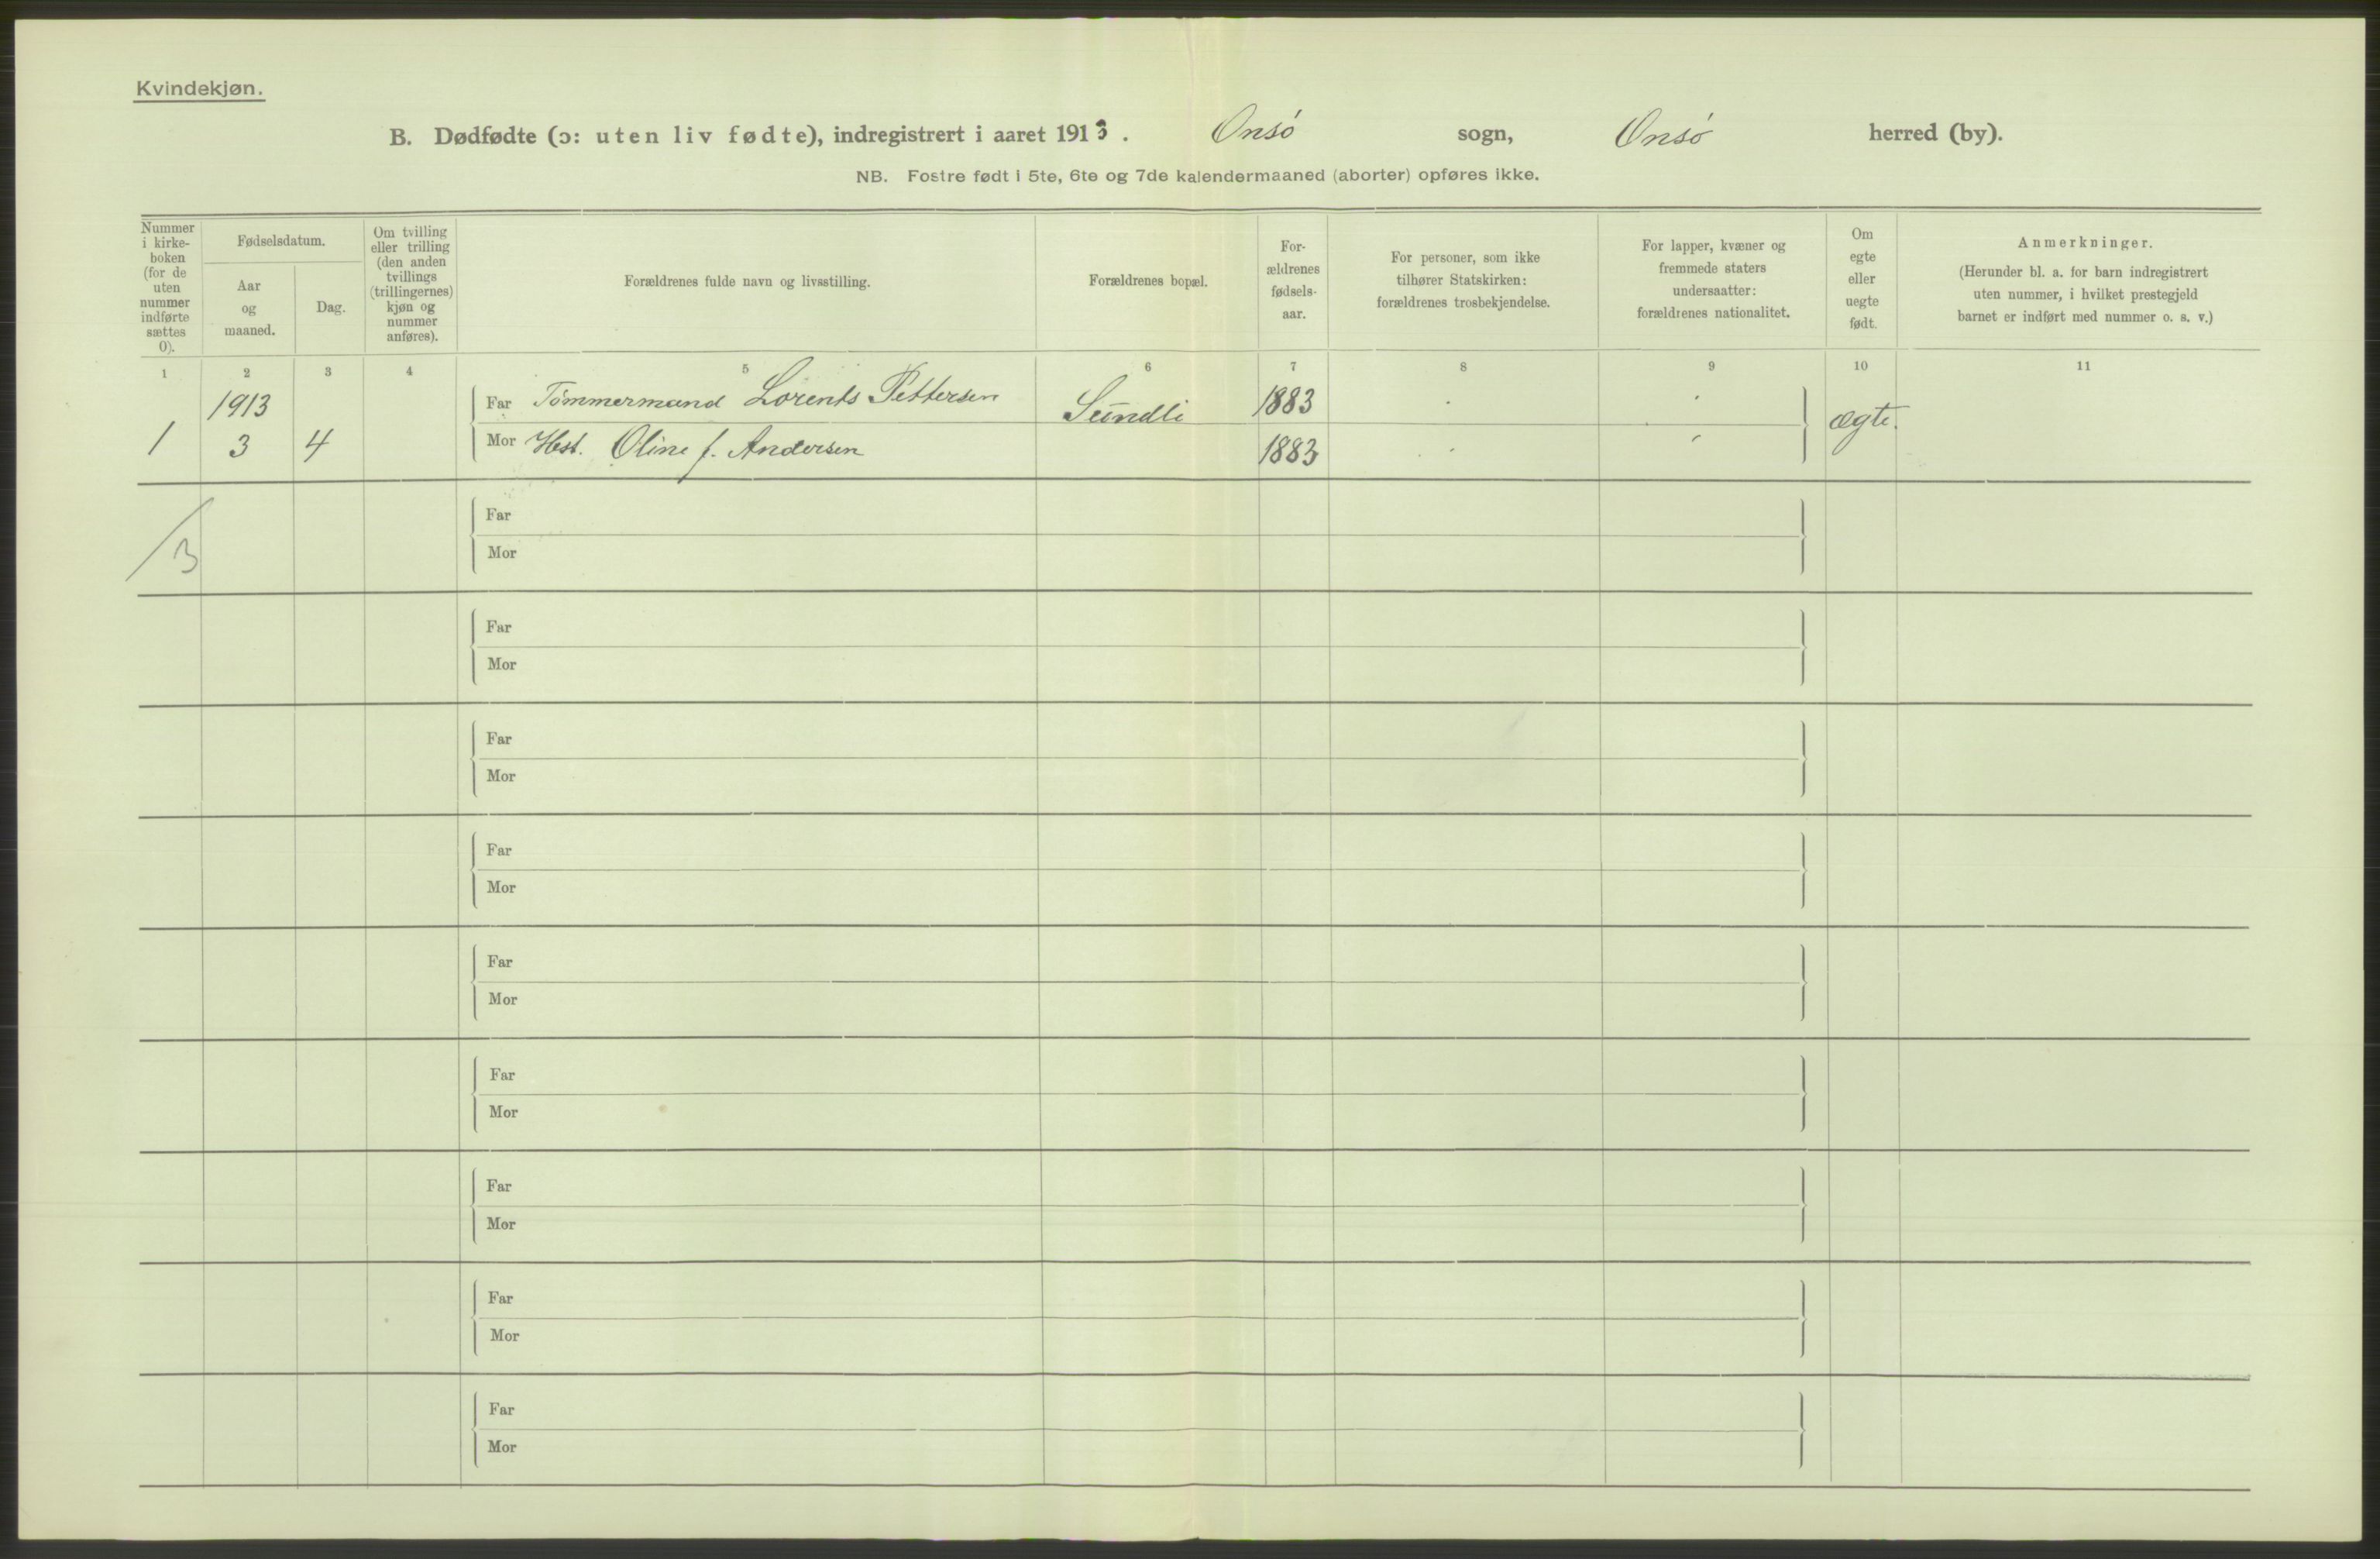 Kvindekjøn.
B. Dødfødte (ɔ: uten liv fødte), indregistrert i aaret 1913. Onsö sogn, Onsö herred (by).
NB. Fostre født i 5te, 6te og 7de kalendermaaned (aborter) opføres ikke.
Nummer i kirke- boken (for de uten nummer indførte sættes 0).
Fødselsdatum.
Aar og maaned.
Dag.
Om tvilling eller trilling (den anden tvillings (trillingernes) kjøn og nummer anføres).
Forældrenes fulde navn og livsstilling.
Forældrenes bopæl.
For- ældrenes fødsels- aar.
For personer, som ikke tilhører Statskirken: forældrenes trosbekjendelse.
For lapper, kvæner og fremmede staters undersaatter: forældrenes nationalitet.
Om egte eller uegte født.
Anmerkninger.
(Herunder bl. a. for barn indregistrert uten nummer, i hvilket prestegjeld barnet er indført med nummer o. s. v.)
1 2 3 4 5 6 7 8 9 10 11
1913 Far Tömmermand Lorents Pettersen Sundli 1883 ægte.
1 3 4 Mor Hust. Oline f. Andersen 1883
/3
Far
Mor
Far
Mor
Far
Mor
Far
Mor
Far
Mor
Far
Mor
Far
Mor
Far
Mor
Far
Mor